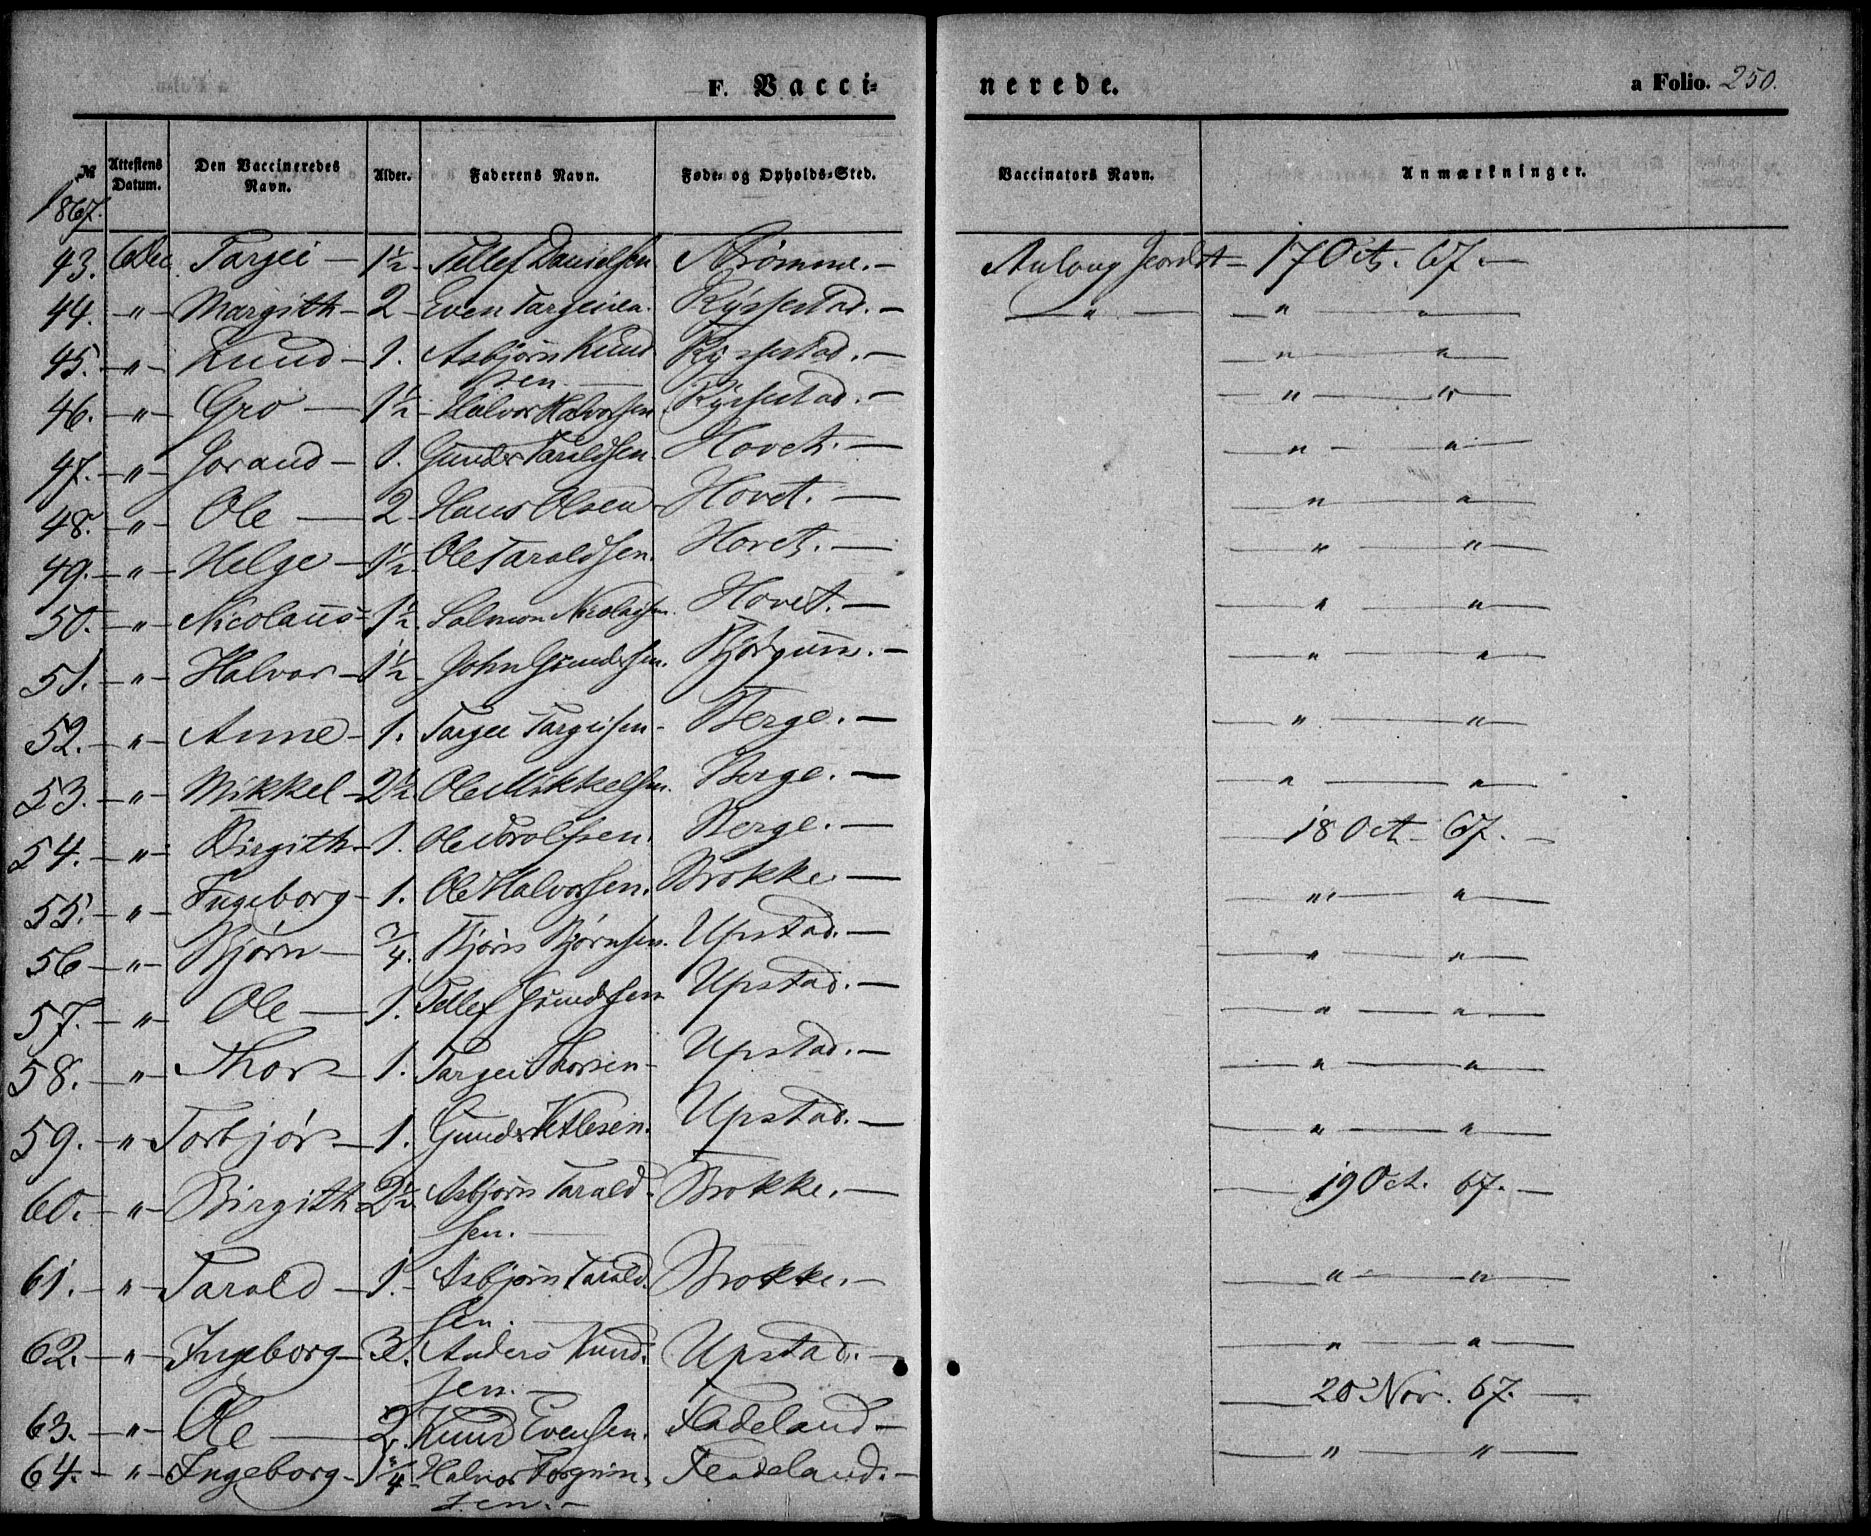 F. Vaccinerede. a Folio. 250.
№ Attestens Datum. Den Vaccineredes Navn. Alder. Faderens Navn. Føde- og Opholds-Sted. Vaccinators Navn. Anmærkninger.
1867.
43. 6 Dec Targei — 1½ Tellef Danielsen Strømme. — 17 Oct. 67. —
44. — " — Margith — 2 — Even Targeisen. Ryssestad. — — " — — " — " —
45. — " — Knud — 1. Asbjørn Knud Ryssestad. — — " — " —
sen. —
46. — " — Gro — 1½ — Halvor Halvorsen Ryssestad. — — " — " —
47. — " — Jorand — 1. Gunder Taraldsen Hovet. — — " — " —
48. — " — Ole — 2 Hans Olsen Hovet. — — " — " —
49. — " — Helge — 1½ Ole Taraldsen. Hovet. — — " — " —
50. — " — Nicolaus — 1½ Salmon Nicolaisen. Hovet. — — " — " —
51. — " — Halvor — 1½ John Gundersen. Bjørgum. — — " — " —
52. — " — Anne — 1. Targei Targeisen — Berge. — — " — " —
53. — " — Mikkel — 2½ Ole Mikkelsen. Berge. — — " — " —
54. — " — Birgith — 1. Ole Berge. — — 18 Oct — 67. —
55. — " — Ingeborg — 1. Ole Halvorsen. Brokke — — " — " —
56 — " — Bjørn — ¾. Bjørn Bjørnsen. Upstad. — — " — " —
57. — " — Ole — 1. Tellef Gundersen Upstad. — — " — " —
58. — " — Thor — 1. Targei Thorsen — Upstad. — — " — " —
59. — " — Torbjør — 1. Gunder Ketilsen. Upstad. — — " — " —
60. — " — Birgith — 2½. Asbjørn Tarald- Brokke. — — 19 Oct. 67. —
sen. —
61. — " — Tarald — 1. — Asbjørn Tarald. Brokke. — — " — " —
sen. —
62. — " — Ingeborg — 3. Anders Knud. Upstad. — — " — " —
sen. —
63. — " — Ole — 2. Knud Evensen. Fladeland — — 20 Nov. 67. —
64. — " — Ingeborg — 1¼ — Halvor Torgrim. Fladeland. — — " — " —
sen. —